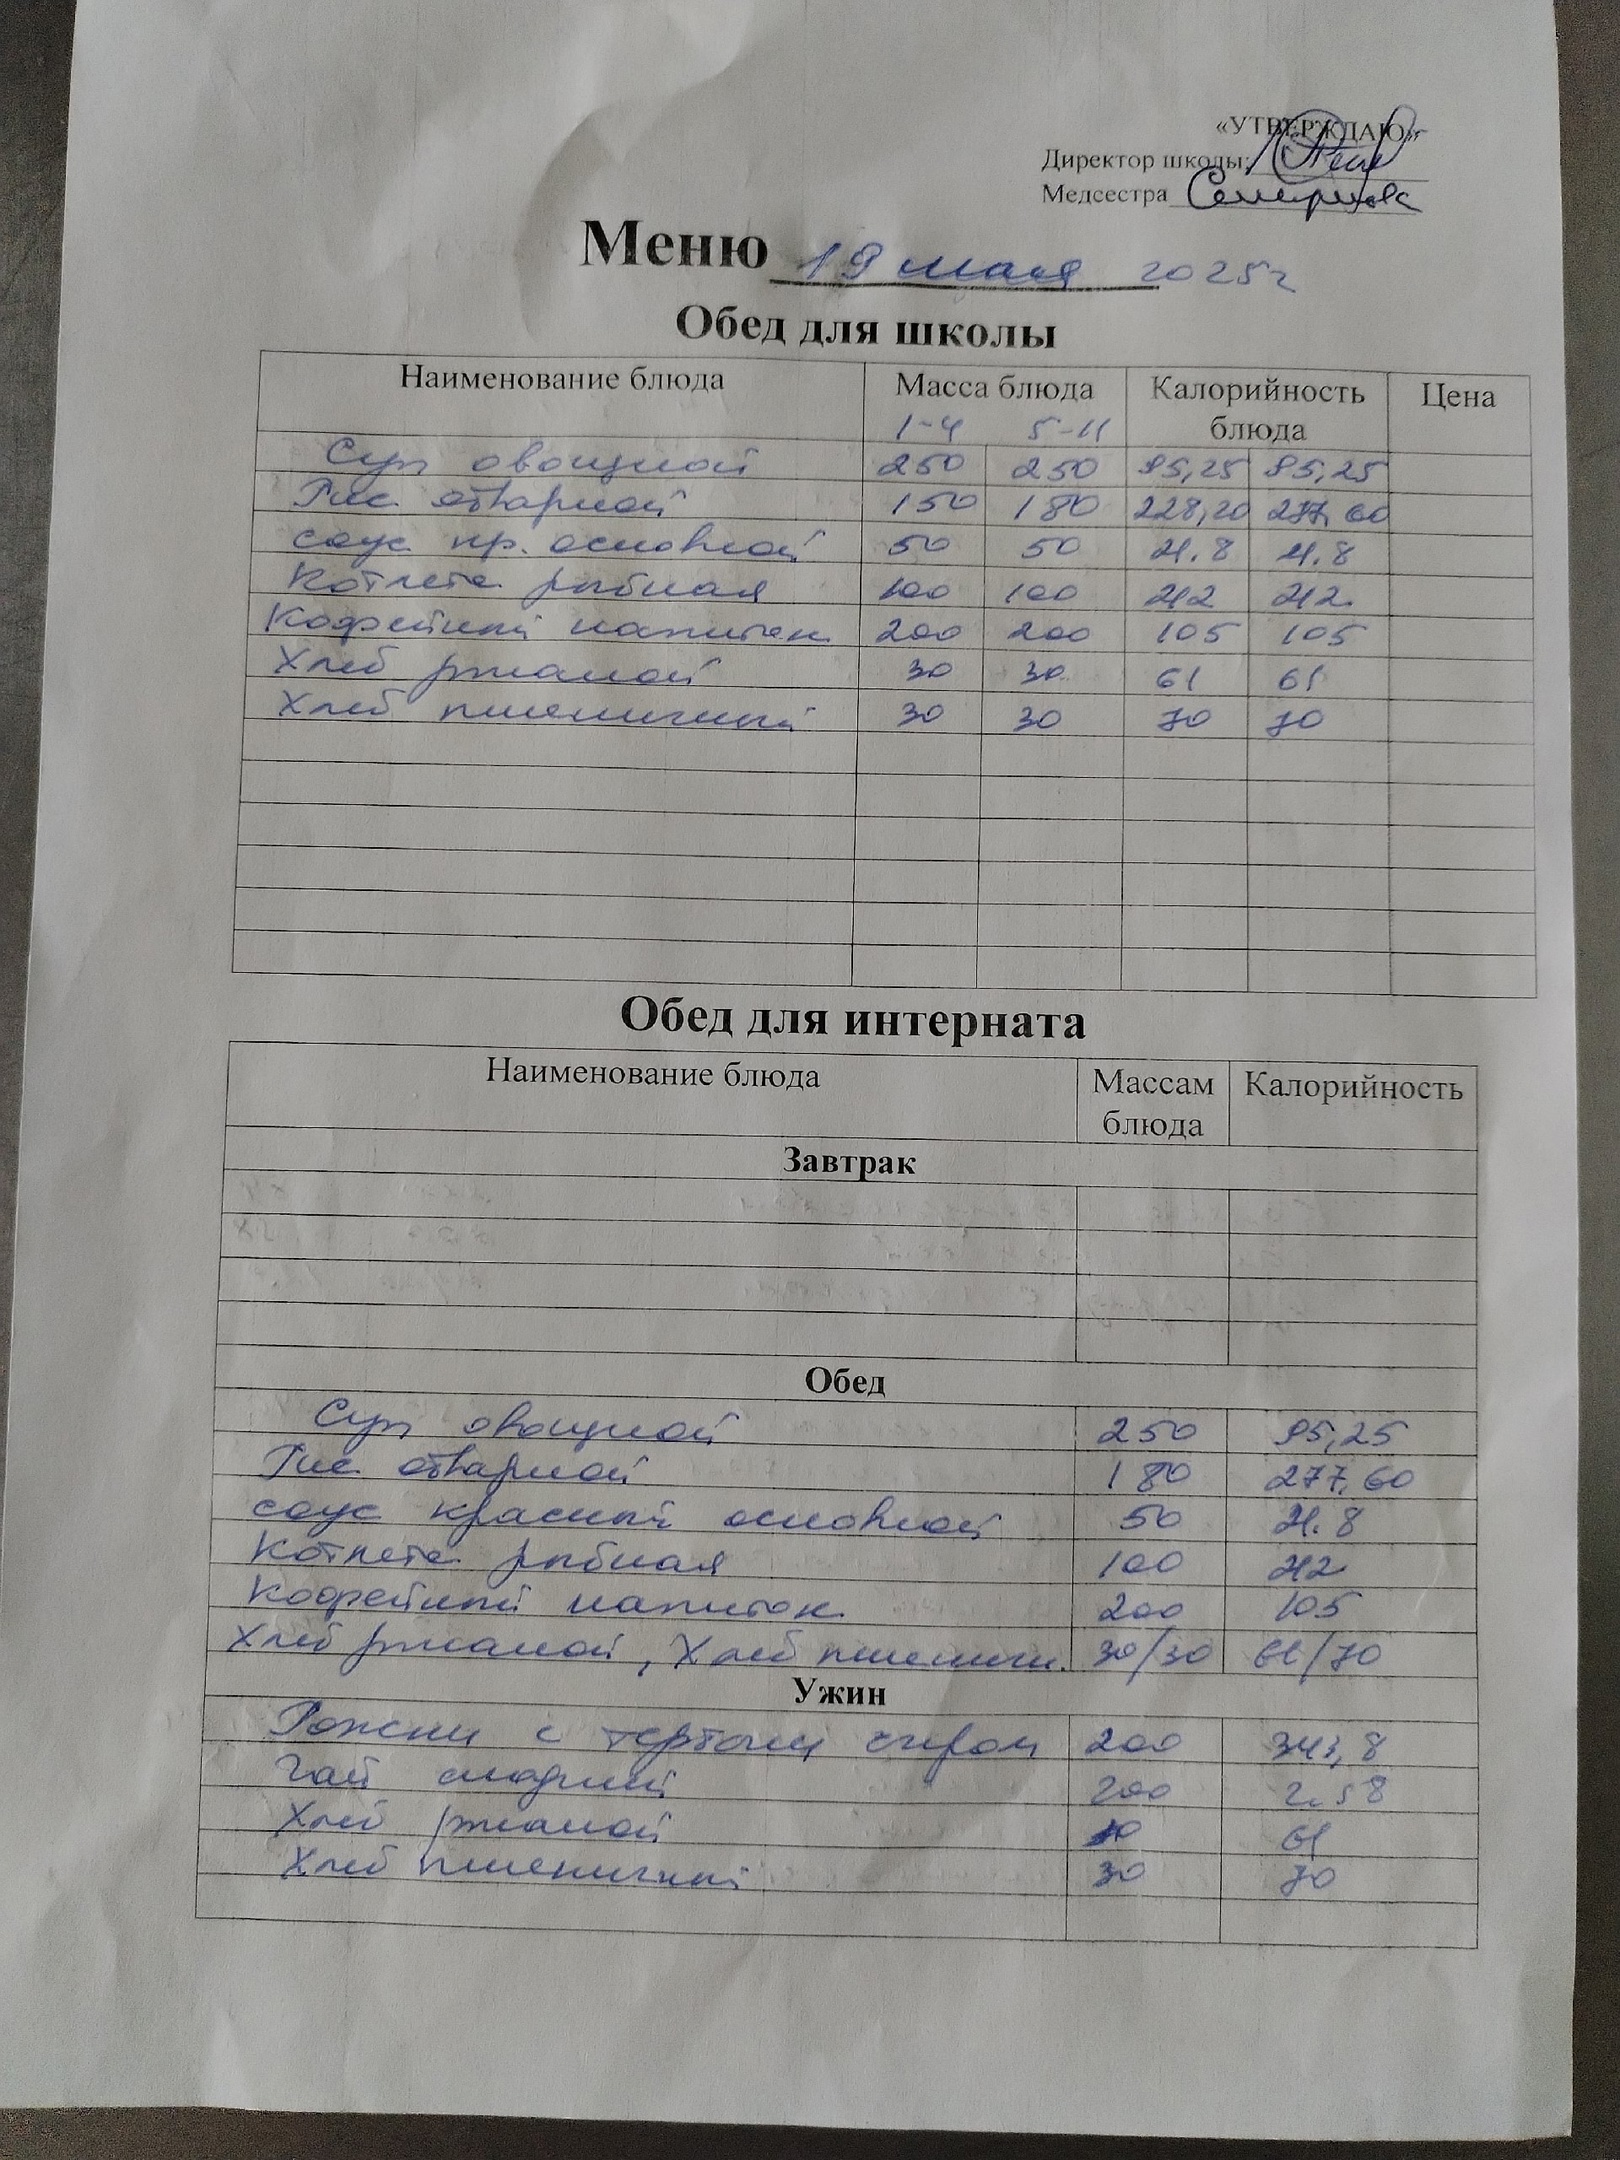 «УТВЕРЖДАЮ»
Директор школы:
Медсестра
Меню 19 мая 2025г
Обед для школы
Наименование блюда Масса блюда Калорийность блюда Цена
1-4 5-11
Суп овощной 250 250 95,25 95,25
Рис отварной 150 180 228,20 277,60
соус кр. основной 50 50 21.8 21.8
Котлета рыбная 100 100 212 212
Кофейный напиток 200 200 105 105
Хлеб ржаной 30 30 61 61
Хлеб пшеничный 30 30 70 70
Обед для интерната
Наименование блюда Массам блюда Калорийность
Завтрак
Обед
Суп овощной 250 95,25
Рис отварной 180 277,60
соус красный основной 50 21.8
Котлета рыбная 100 212
Кофейный напиток 200 105
Хлеб ржаной, Хлеб пшеничн. 30/30 61/70
Ужин
Рожки с тертым сыром 200 343,8
Чай сладкий 200
Хлеб ржаной 61
Хлеб пшеничный 30 70